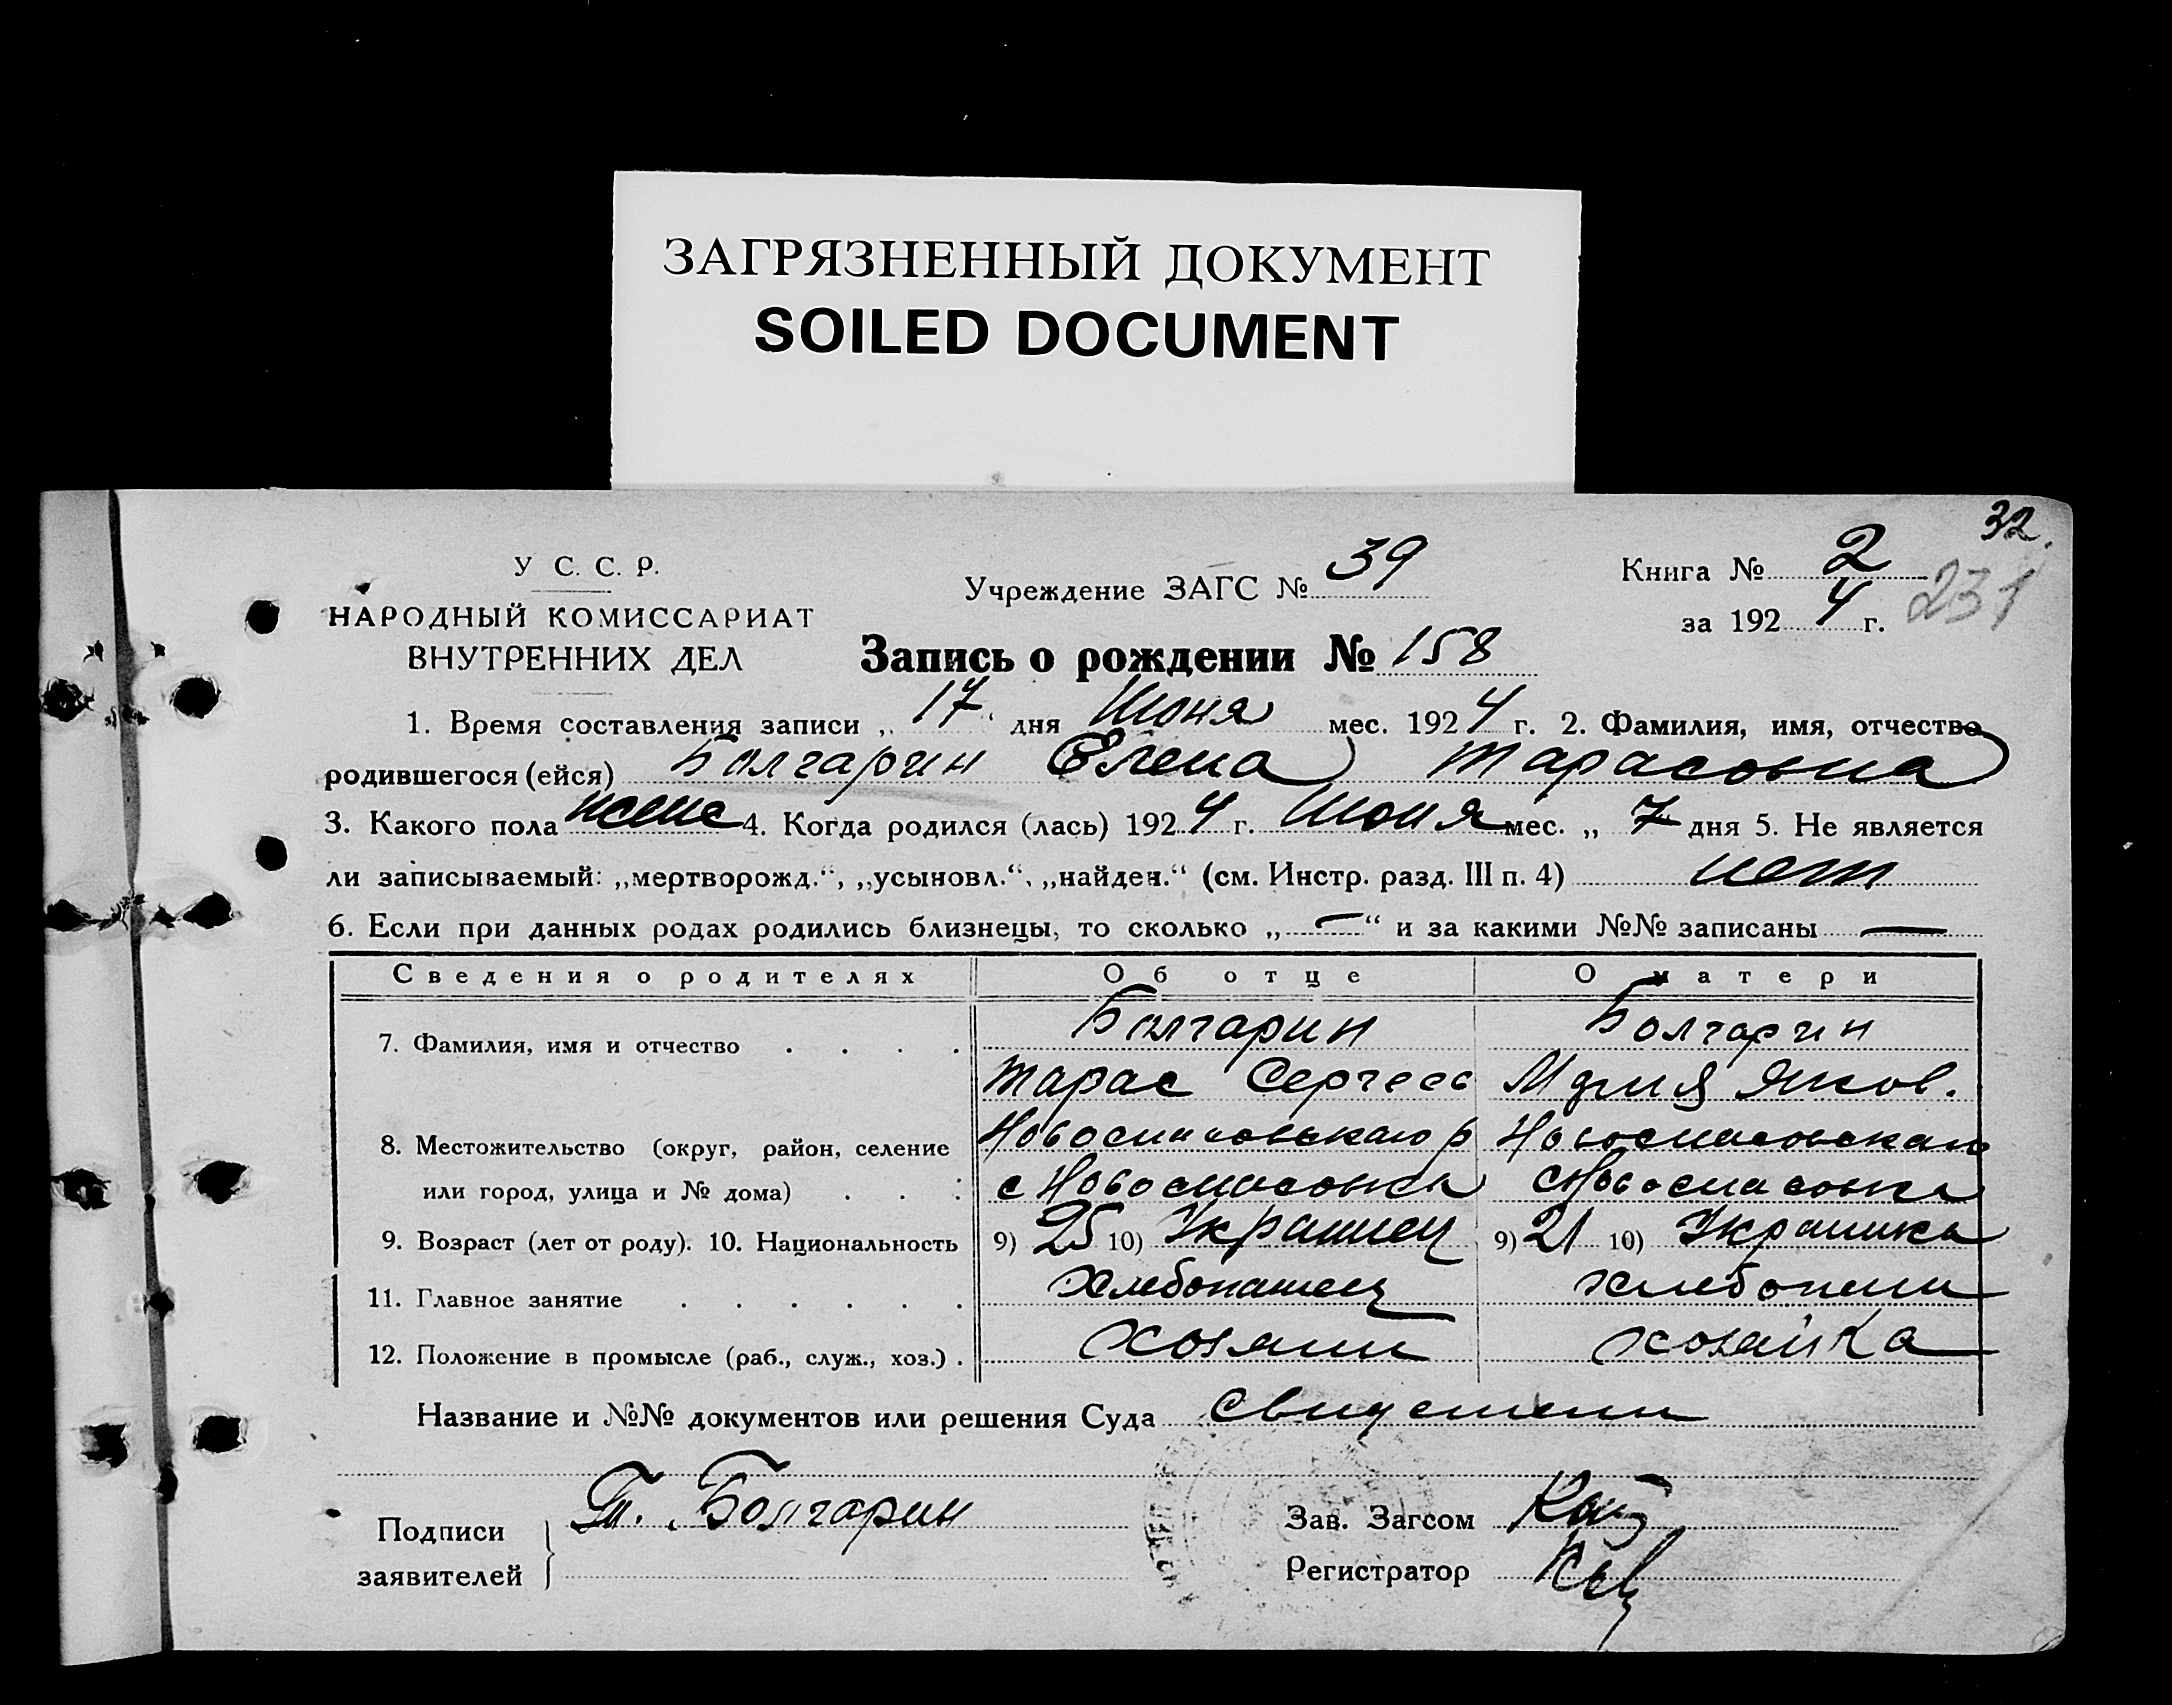 ЗАГРЯЗНЕННЫЙ ДОКУМЕНТ
SOILED DOCUMENT
32.
У С. С. Р.
НАРОДНЫЙ КОМИССАРИАТ
ВНУТРЕННИХ ДЕЛ
Учреждение ЗАГС № 39
Книга № 2
за 1924 г. 231
Запись о рождении № 158
1. Время составления записи „ 17 " дня Июня мес. 1924 г. 2. Фамилия, имя, отчество
родившегося (ейся) Болгарин Елена Тарасовна
3. Какого пола женс 4. Когда родился (лась) 1924 г. Июня мес. „ 7 дня 5. Не является
ли записываемый: „мертворожд.“, „усыновл.“, „найден.“ (см. Инстр. разд. III п. 4) нет
6. Если при данных родах родились близнецы, то сколько „ — “ и за какими №№ записаны —
Сведения о родителях Об отце О матери
7. Фамилия, имя и отчество . . . . Болгарин Болгарин
Тарас Сергеев Мария Яков.
8. Местожительство (округ, район, селение Новоспасовскаго р Новоспасовскаго
или город, улица и № дома) . . . с Новоспасовка с Новоспасовка
9. Возраст (лет от роду). 10. Национальность 9) 25 10) Украинец 9) 21 10) Украинка
11. Главное занятие . . . . . . Хлебопашец хлебопаш
12. Положение в промысле (раб., служ., хоз.) . Хозяин хозяйка
Название и №№ документов или решения Суда свидетели
Подписи Т. Болгарин
заявителей
Зав. Загсом
Регистратор